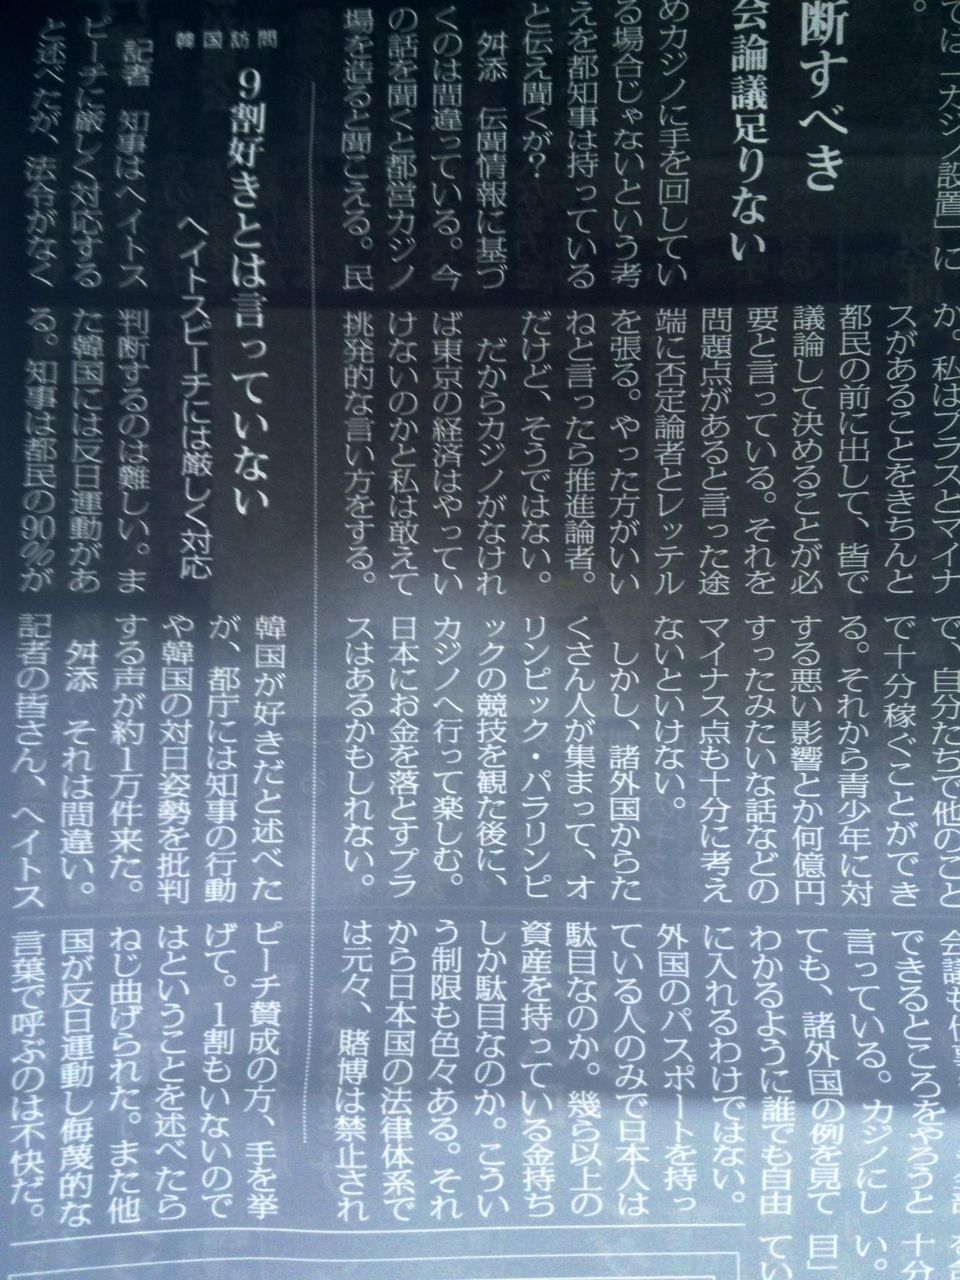 ては「カジノ設置」に
断すべき
会論議足りない
めカジノに手を回してい
る場合じゃないという考
えを都知事は持っている
と伝え聞くが?
舛添 伝聞情報に基づ
くのは間違っている。今
の話を聞くと都営カジノ
場を造ると聞こえる。民
か。私はプラスとマイナ
スがあることをきちんと
都民の前に出して、皆で
議論して決めることが必
要と言っている。それを
問題点があると言った途
端に否定論者とレッテル
を張る。やった方がいい
ねと言ったら推進論者。
だけど、そうではない。
だからカジノがなけれ
ば東京の経済はやってい
けないのかと私は敢えて
挑発的な言い方をする。
で、自分たちで他のこと
で十分稼ぐことができ
る。それから青少年に対
する悪い影響とか何億円
すったみたいな話などの
マイナス点も十分に考え
ないといけない。
しかし、諸外国からた
くさん人が集まって、オ
リンピック・パラリンピ
ックの競技を観た後に、
カジノへ行って楽しむ。
日本にお金を落とすプラ
スはあるかもしれない。
できるところをやろうと
言っている。カジノにし
ても、諸外国の例を見て
わかるように誰でも自由
に入れるわけではない。
外国のパスポートを持っ
ている人のみで日本人は
駄目なのか。幾ら以上の
資産を持っている金持ち
しか駄目なのか。こうい
う制限も色々ある。それ
から日本国の法律体系で
は元々、賭博は禁止され
十分
い。
目」
てい
韓国訪問
9割好きとは言っていない
ヘイトスピーチには厳しく対応
記者 知事はヘイトス
ピーチに厳しく対応する
と述べたが、法令がなく
判断するのは難しい。ま
た韓国には反日運動があ
る。知事は都民の90%が
韓国が好きだと述べた
が、都庁には知事の行動
や韓国の対日姿勢を批判
する声が約1万件来た。
舛添 それは間違い。
記者の皆さん、ヘイトス
ピーチ賛成の方、手を挙
げて。1割もいないので
はということを述べたら
ねじ曲げられた。また他
国が反日運動し侮蔑的な
言葉で呼ぶのは不快だ。